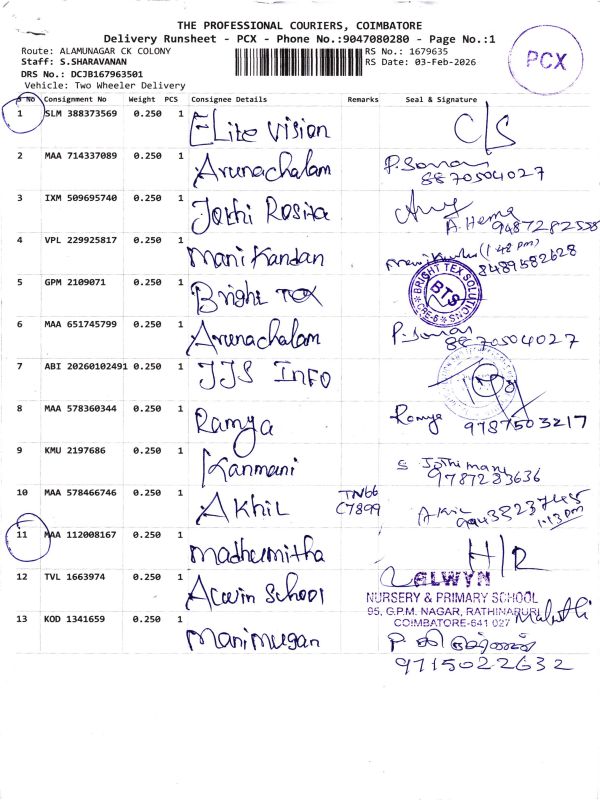 THE PROFESSIONAL COURIERS, COIMBATORE
Delivery Runsheet - PCX - Phone No.:9047080280 - Page No.:1
Route: ALAMUNAGAR CK COLONY
Staff: S.SHARAVANAN
DRS No.: DCJB167963501
Vehicle: Two Wheeler Delivery
RS No.: 1679635
RS Date: 03-Feb-2026
PCX
No Consignment No Weight PCS Consignee Details Remarks Seal & Signature
1 SLM 388373569 0.250 1 Elite Vision C/S
2 MAA 714337089 0.250 1 Arunachalam 8870504027
3 IXM 509695740 0.250 1 Jothi Rosita A. Hema 9487282558
4 VPL 229925817 0.250 1 Manikandan (1 48 pm) 8489582628
5 GPM 2109071 0.250 1 Bright Tex BRIGHT TEX SOLUTIONS BTS CBE-6
6 MAA 651745799 0.250 1 Arunachalam 8870504027
7 ABI 20260102491 0.250 1 JJS INFO
8 MAA 578360344 0.250 1 Ramya Ramya 9787503217
9 KMU 2197686 0.250 1 Kanmani S Jothimani 9787283636
10 MAA 578466746 0.250 1 Akhil TN66 C7899 Akil 1.13pm
11 MAA 112008167 0.250 1 Madhumitha H/R
12 TVL 1663974 0.250 1 School ALWYN
NURSERY & PRIMARY SCHOOL
95, G.P.M. NAGAR, RATHINAPURI,
COIMBATORE-641 027
13 KOD 1341659 0.250 1 Manimugan 9715022632